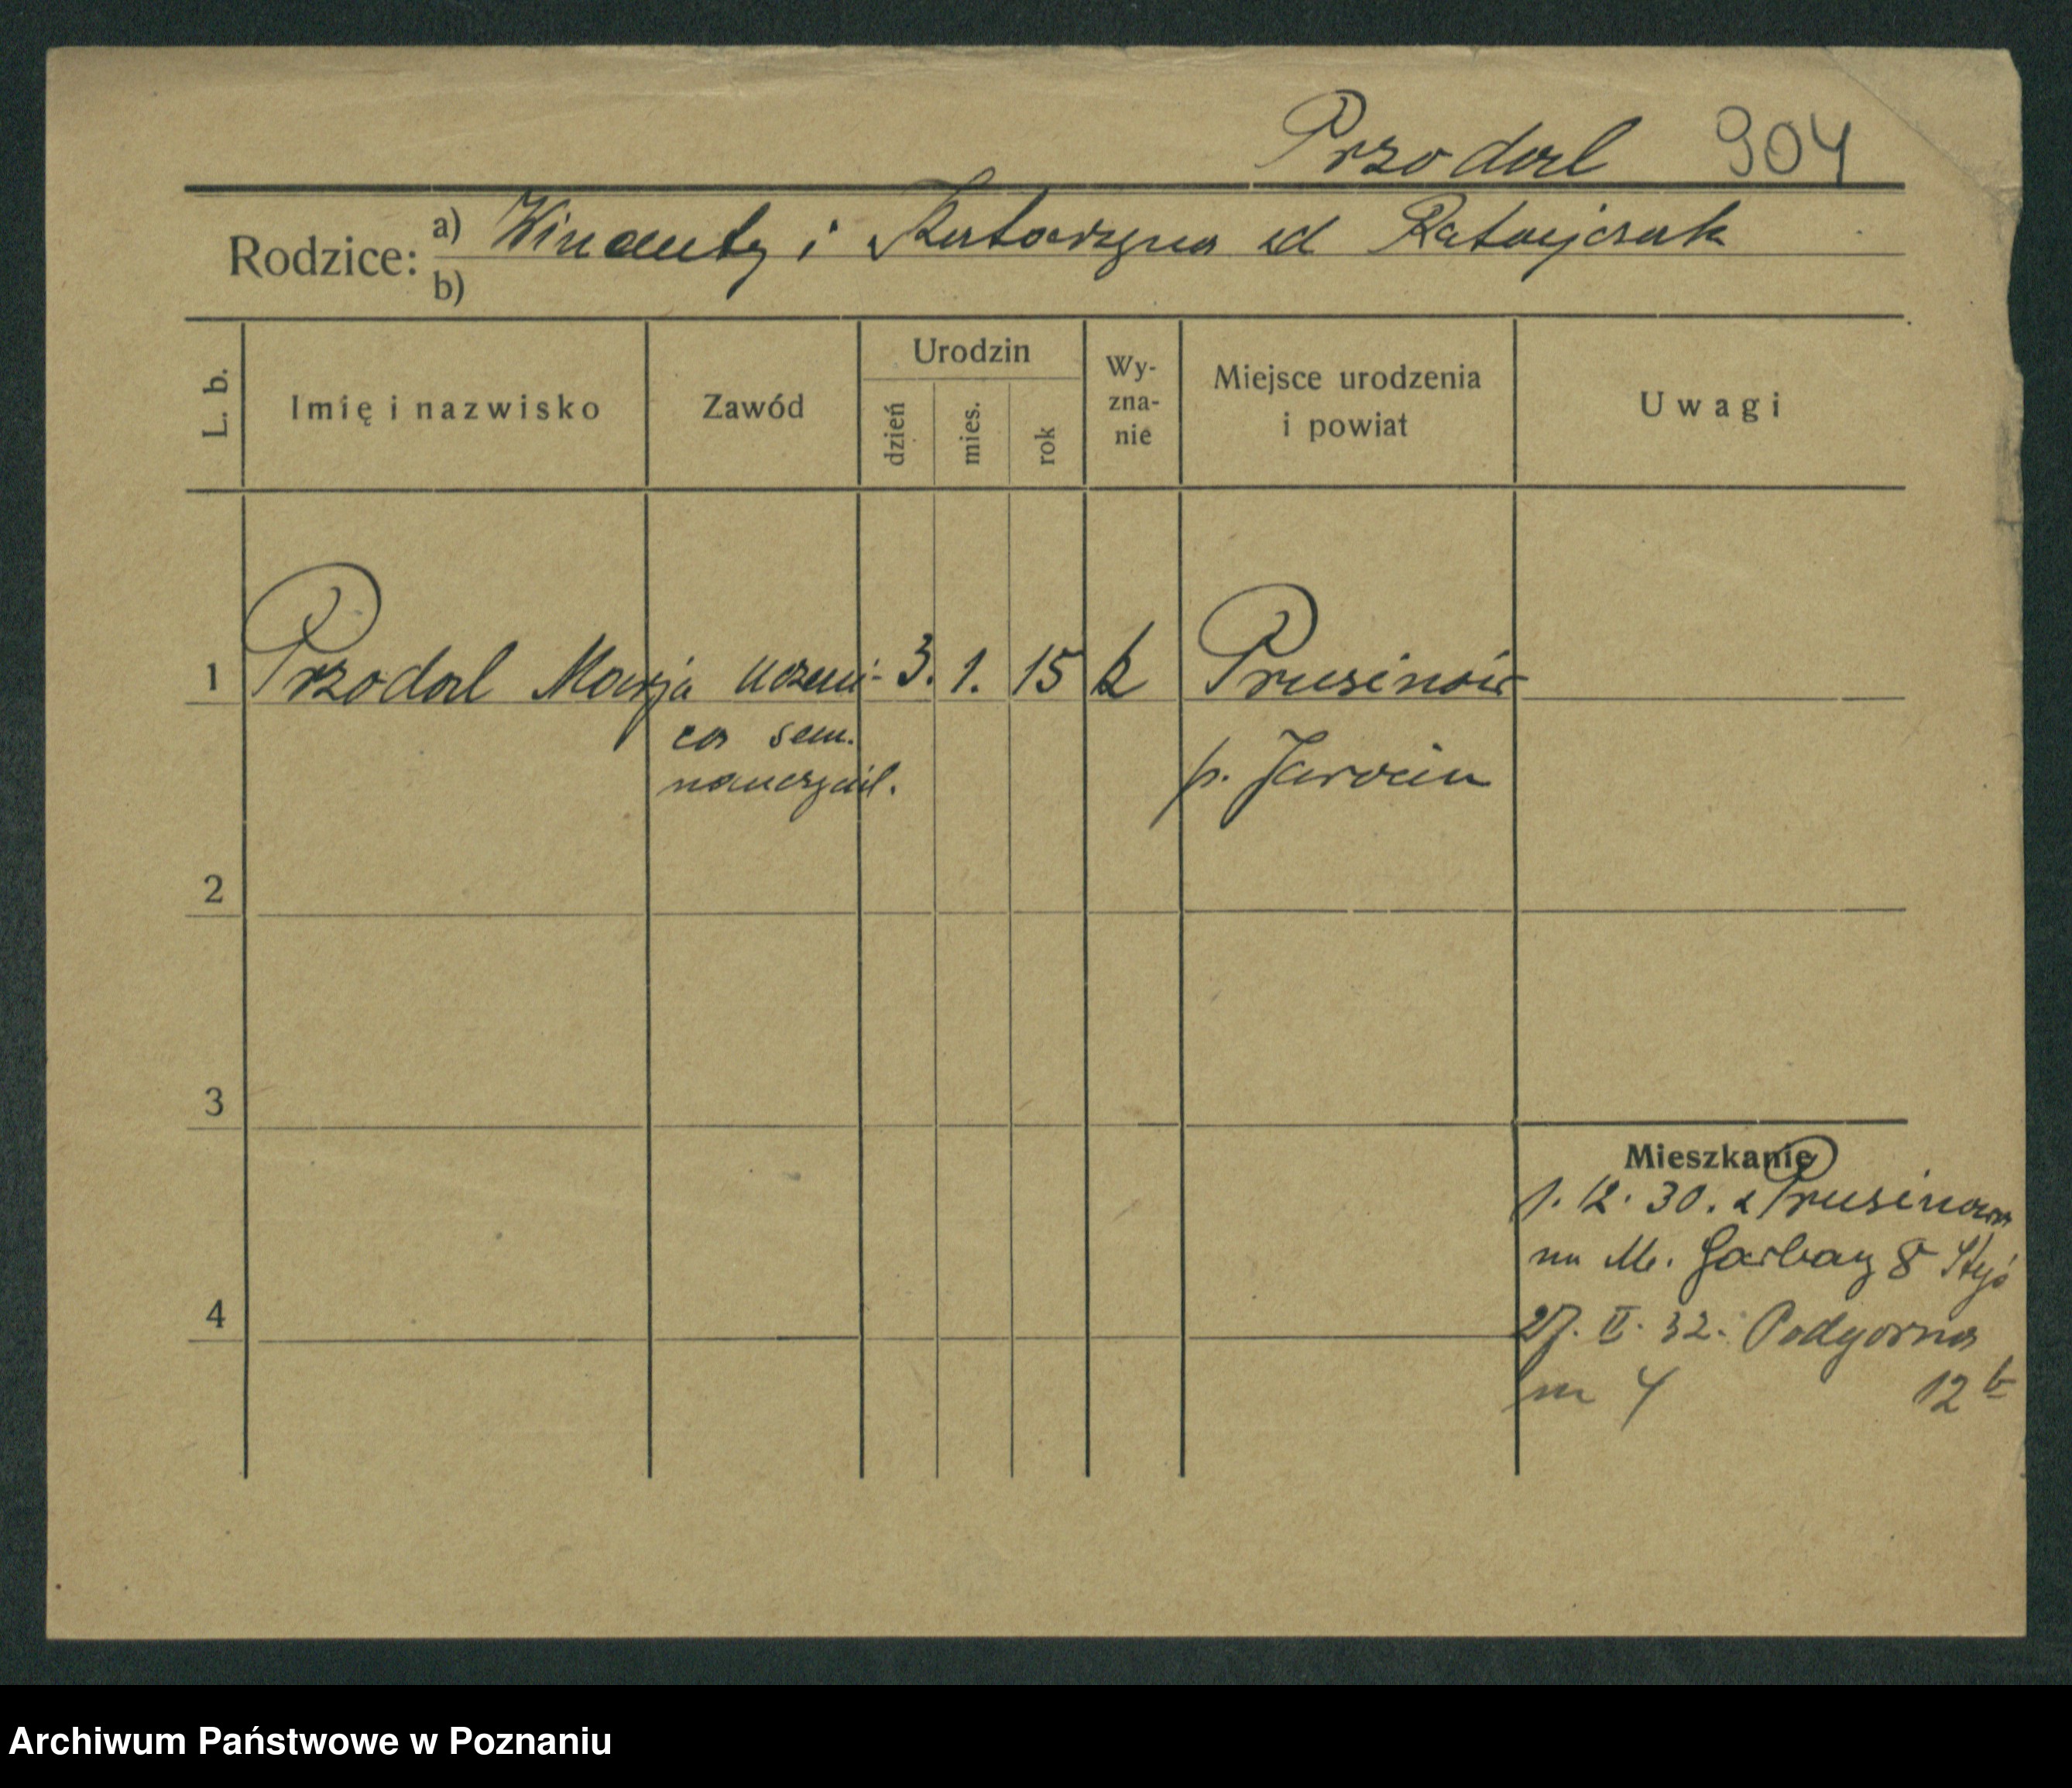 Przodal 904
Rodzice: a) Wincenty i Katarzyna zd Ratajczak
b)
L. b.
Imię i nazwisko
Zawód
Urodzin
dzień
mies.
rok
Wy-
zna-
nie
Miejsce urodzenia
i powiat
Uwagi
1 Przodal Marja uczeni- 3. 1. 15 k Prusinów
ca sem. p. Jarocin
nauczyciel.
2
3
4
Mieszkanie
1. 12. 30. z Prusinowa
na M. Garbary 8
27. II. 32. Podgorna
m 4 12b
Archiwum Państwowe w Poznaniu